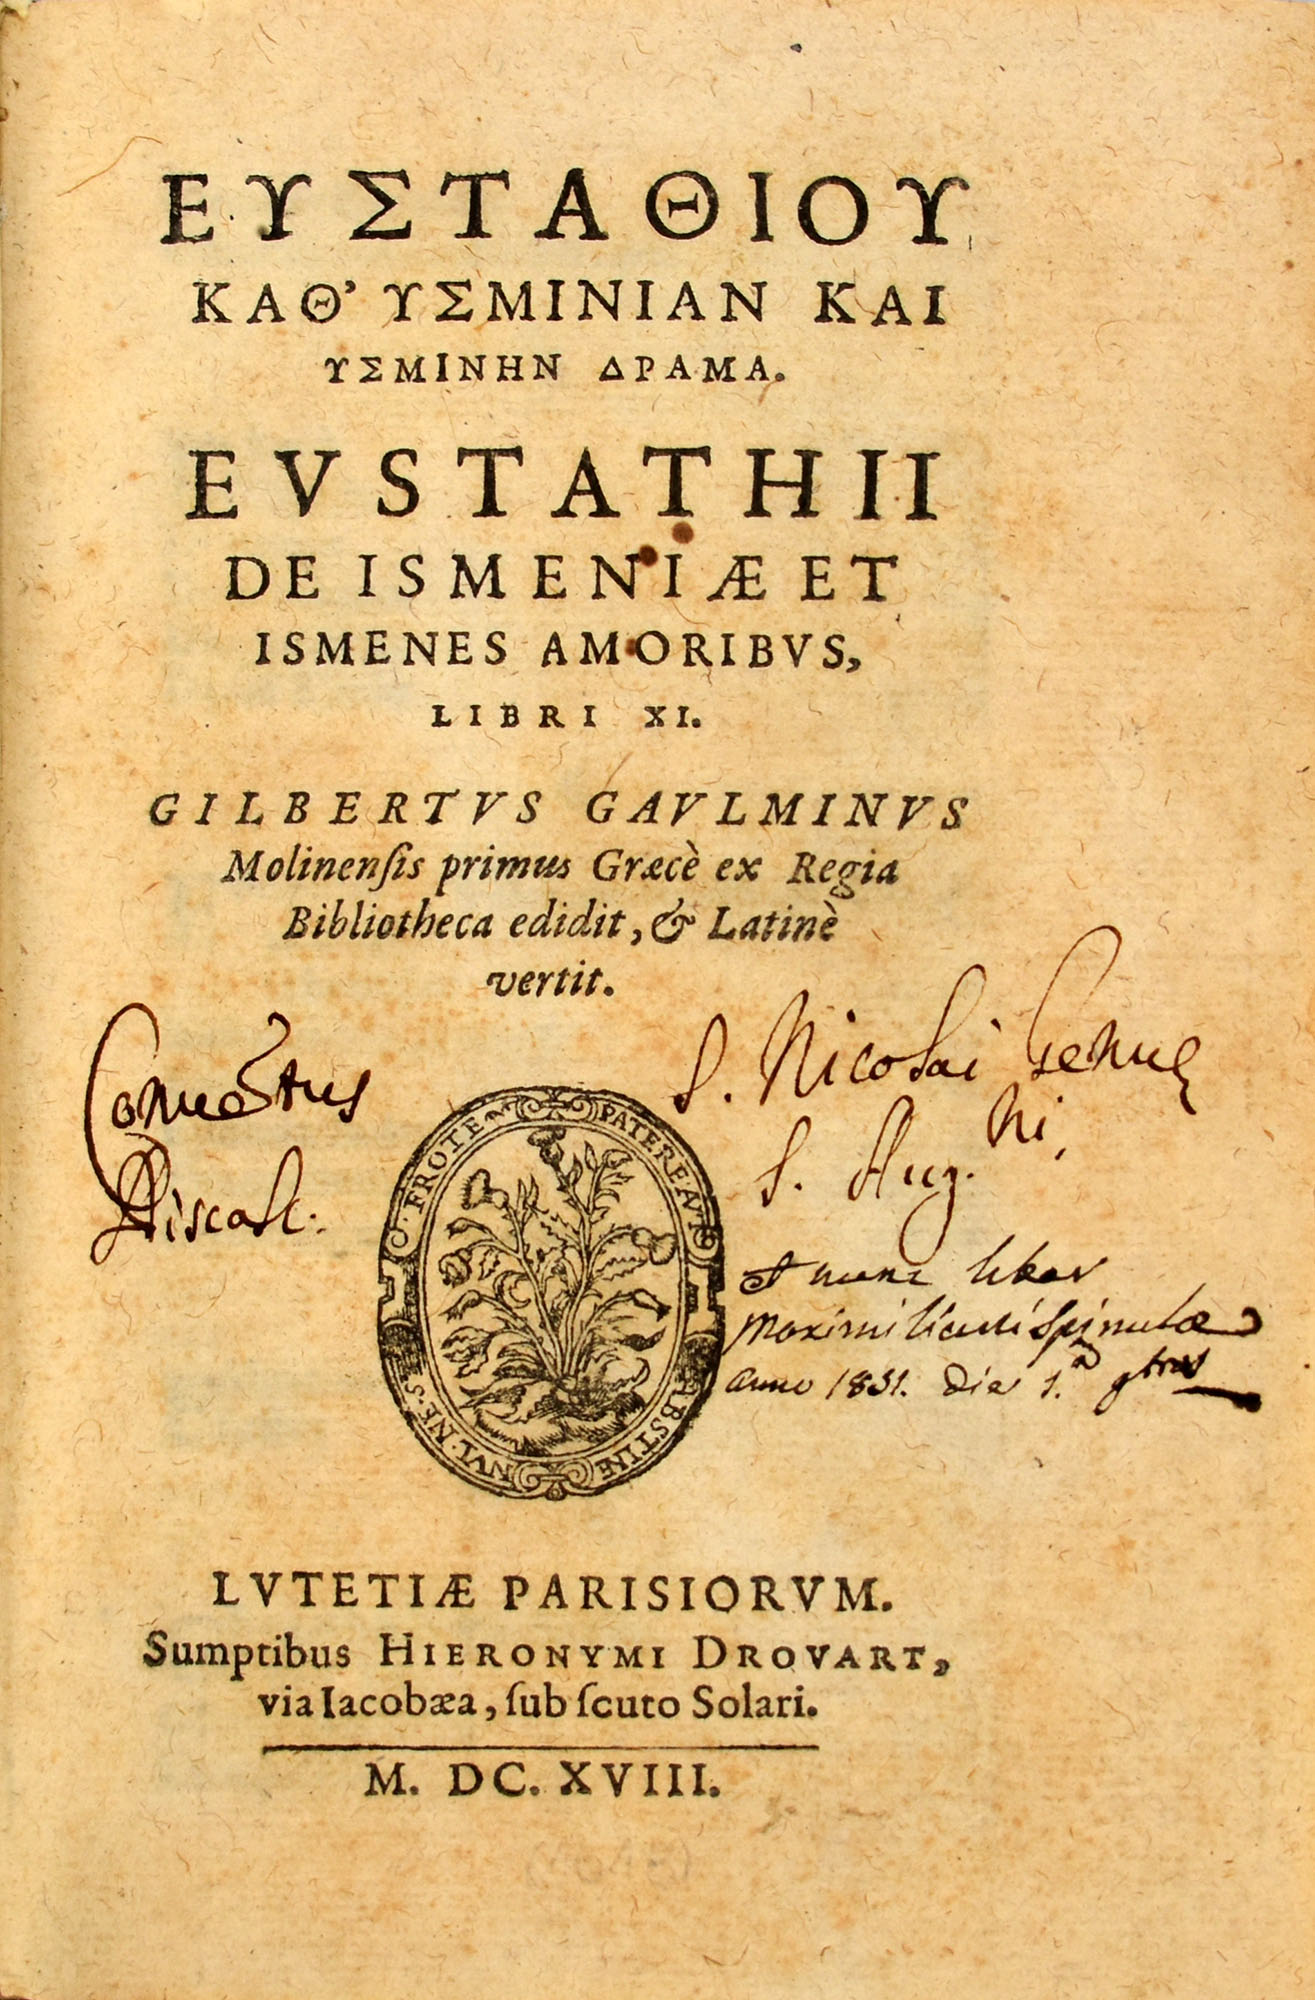 ΕΥΣΤΑΘΙΟΥ
ΚΑΘ' ΥΣΜΙΝΙΑΝ ΚΑΙ
ΥΣΜΙΝΗΝ ΔΡΑΜΑ.
EVSTATHII
DE ISMENIÆ ET
ISMENES AMORIBVS,
LIBRI XI.
GILBERTVS GAVLMINVS
Molinenſis primus Græcè ex Regia
Bibliotheca edidit, & Latinè
vertit.
Conuentus
S. Nicolai Genuę
Discalc.
S. Aug.ni,
Et nunc liber
Maximiliani Spinulæ
anno 1831. die 1.a 9bris
C. FROTE PATEREAVT ABSTINE NVL. NE. S
LVTETIÆ PARISIORVM.
Sumptibus HIERONYMI DROVART,
via Iacobæa, ſub ſcuto Solari.
M. DC. XVIII.